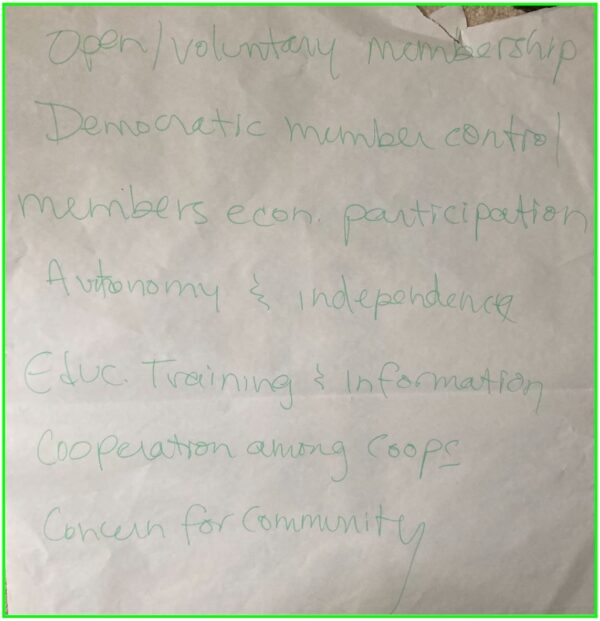 Open/voluntary membership
Democratic member control
members econ. participation
Autonomy & independence
Educ. Training & Information
Cooperation among Coops
Concern for Community